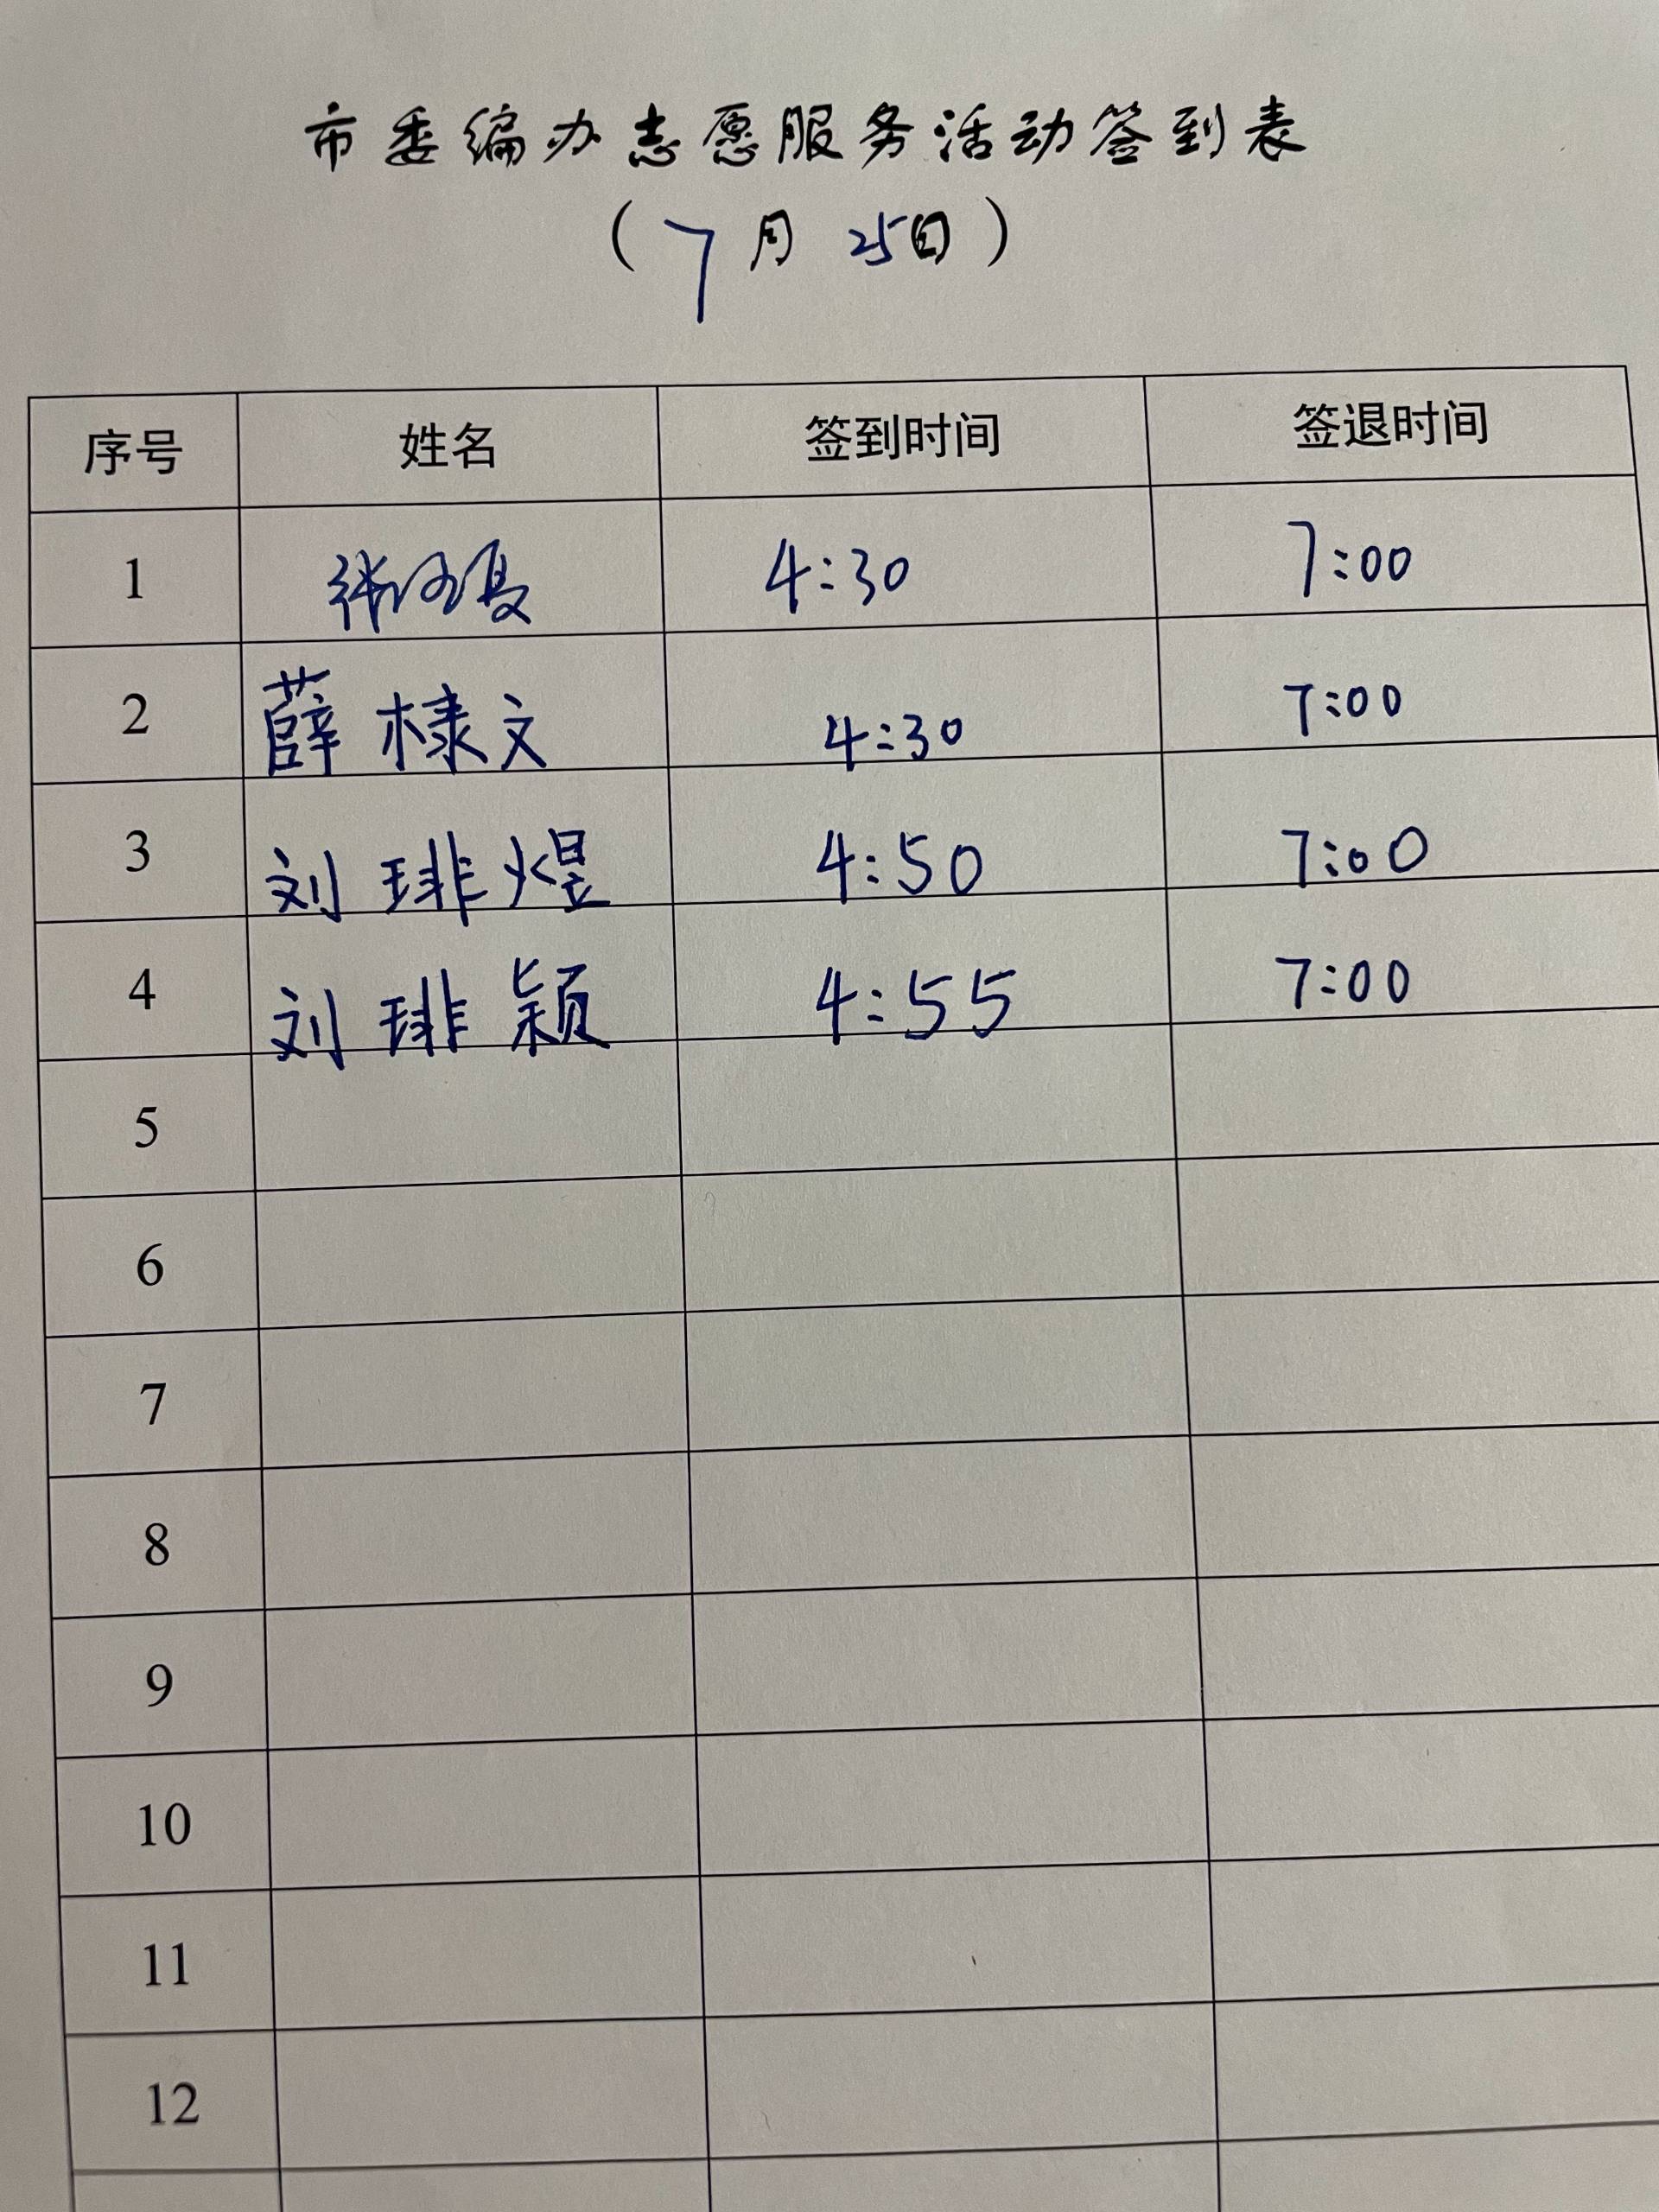 市委编办志愿服务活动签到表
(7月25日)
序号 姓名 签到时间 签退时间
1 4:30 7:00
2 薛棣文 4:30 7:00
3 刘琲煜 4:50 7:00
4 刘琲颖 4:55 7:00
5
6
7
8
9
10
11
12